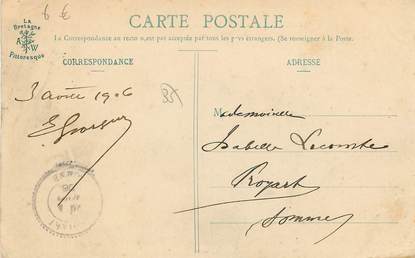 6 €
La
Bretagne
A W
Pittoresque
CARTE POSTALE
La Correspondance au recto n'est pas acceptée par tous les pays étrangers. (Se renseigner à la Poste.
CORRESPONDANCE
ADRESSE
3 août 1906
35
Mademoiselle
Isabelle Lecomte
Proyart
Somme